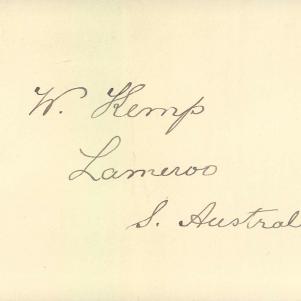 W. Kemp
Lameroo
S. Austral